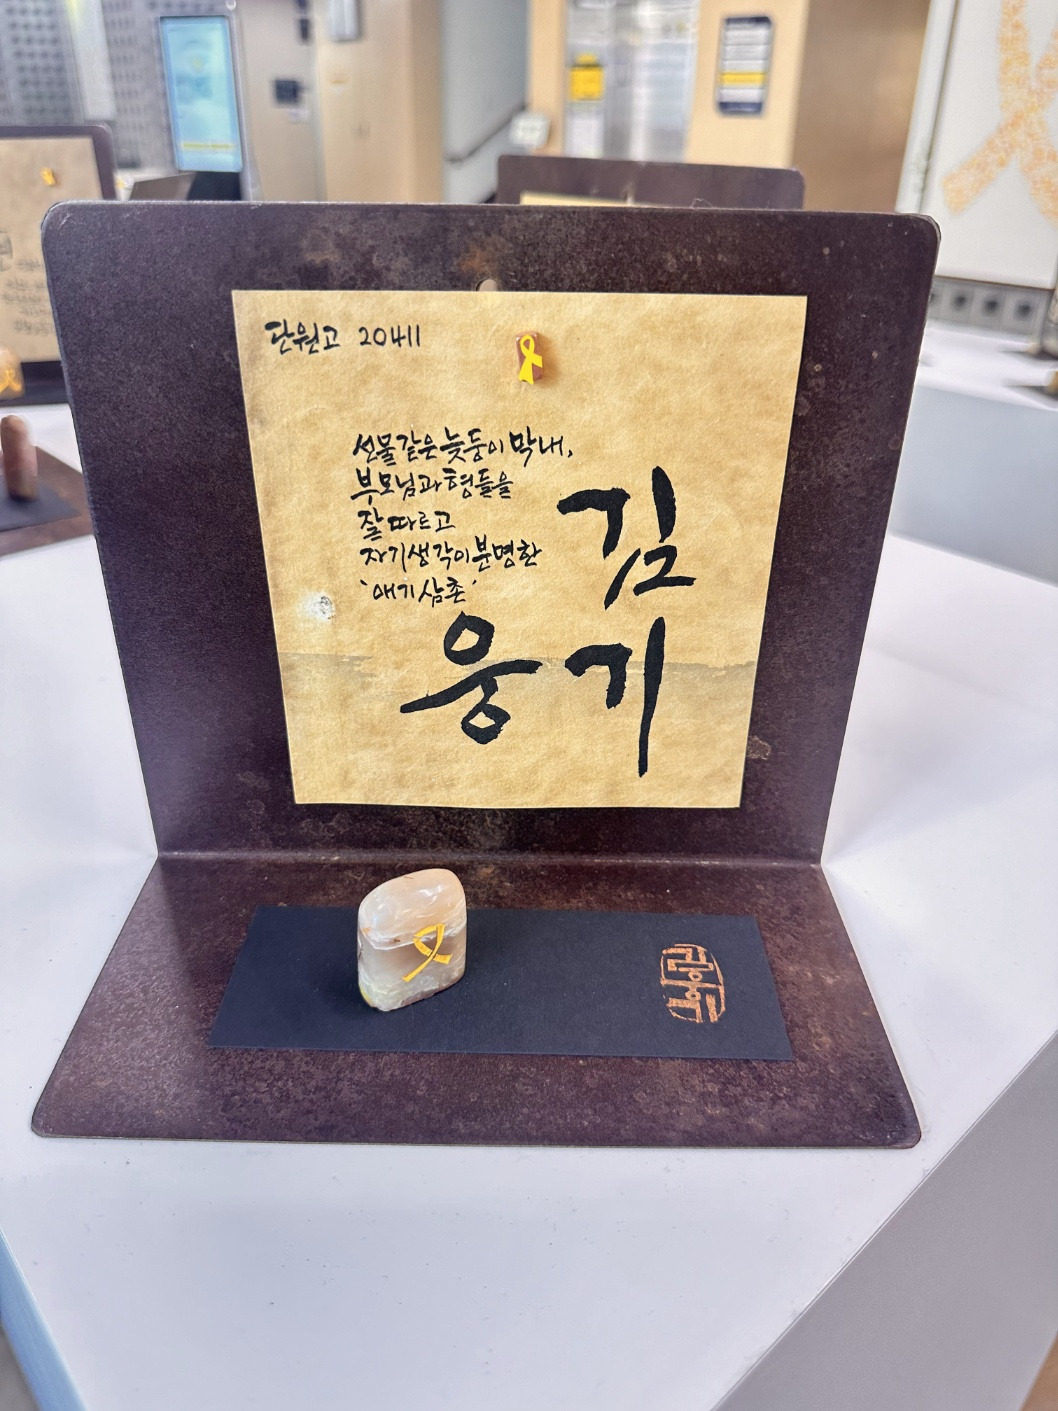 단원고 20411
선물같은 늦둥이 막내,
부모님과 형들을
잘 따르고
자기생각이 분명한
'애기삼촌'
김
웅기
김웅기